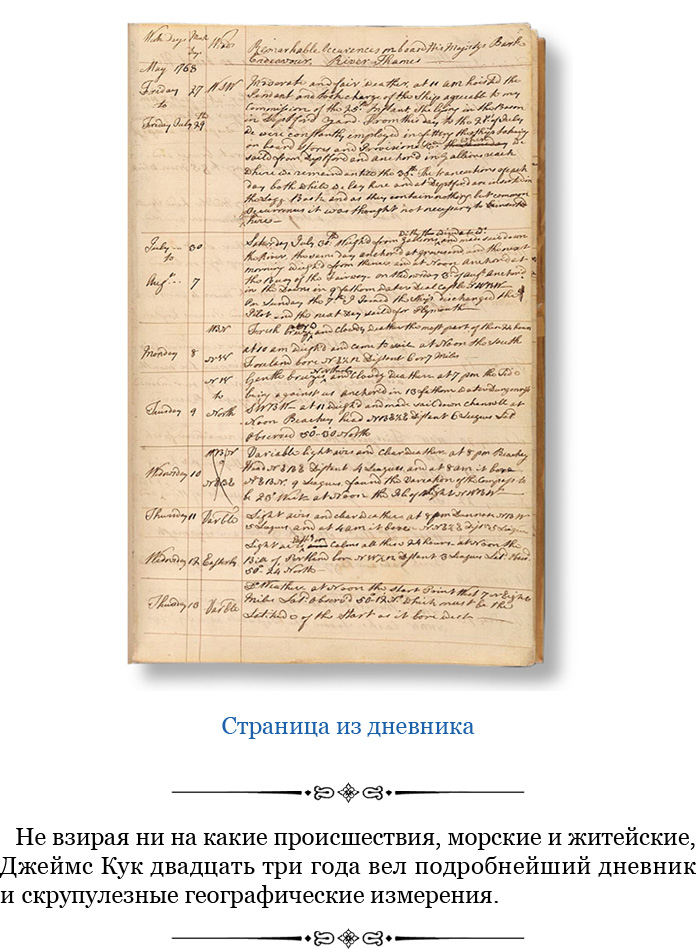 Week days Winds Remarkable Occurences on board His Majestys Bark
Endeavour River Thames
May 1768
Friday 27 NW Moderate and fair weather, at 11 am hoisted the
to Pendant and took charge of the Ship agreeable to my
Commission of the 25th Instant, She lying in the Bason
Friday July 29th in Deptford Yard. From this day to the 21st of July
We were constantly employed in fitting the ship taking
on board stores and Provisions &c. We
sailed from Deptford and anchored in Gallions reach
where we remained until the 30th. The transactions of each
day both while we lay here and at Deptford are inserted in
the Logg Book and as they contain nothing but common
Occurrences it was thought not necessary to insert
here
July 30 Saturday July 30th Weighed from Gallions, and made sail down
to the River, the same day anchored at Gravesend and the next
morning weighed from thence and at Noon Anchored at
Augst 7 the Buoy of the Fairway. On Wednesday 3rd of Augst anchored
in the Downs in 9 fathom water Deal Castle NWBW
On Sunday the 7th I Joined the Ship, discharged the
Pilot and the next Day saild for Plymouth
WBN Fresh and Cloudy weather the most part of these 24 hours
Monday 8 NW at 10 am weighd and came to sail at Noon the South
Foreland bore Distant 6 or 7 Miles
NW Gentle breezes and Cloudy weather at 7 pm the Tide
to being against us anchored in 13 fathom water Dungeness
Tuesday 9 North SWBW at 11 weighd and made sail down channell at
Noon Beachey head Distant 6 Leagues Latd
Observed 50°-30 North
Variable light airs and clear weather at 8 pm Beachey
Wednesday 10 Head Distant 4 Leagues, and at 8 am it bore
NEBN 9 Leagues found the Variation of the Compass to
be 23° West at Noon the Isle of Wight NWBW
Thursday 11 Varble Light airs and clear weather at 8 pm Dunnose
5 Leagues and at 4 am it bore Dist 5 Leagues
Light airs and Calms all these 24 hours at Noon the
Wednesday 12 Easterly Bill of Portland bore Distant 3 Leagues Latd Obsd
50°-24 North
Do Weather at Noon the Start Point
Thursday 13 Varble Miles Latd Observed 50°-12 N which must be the
Latitude of the Start as it bore West
Страница из дневника
Не взирая ни на какие происшествия, морские и житейские,
Джеймс Кук двадцать три года вел подробнейший дневник
и скрупулезные географические измерения.